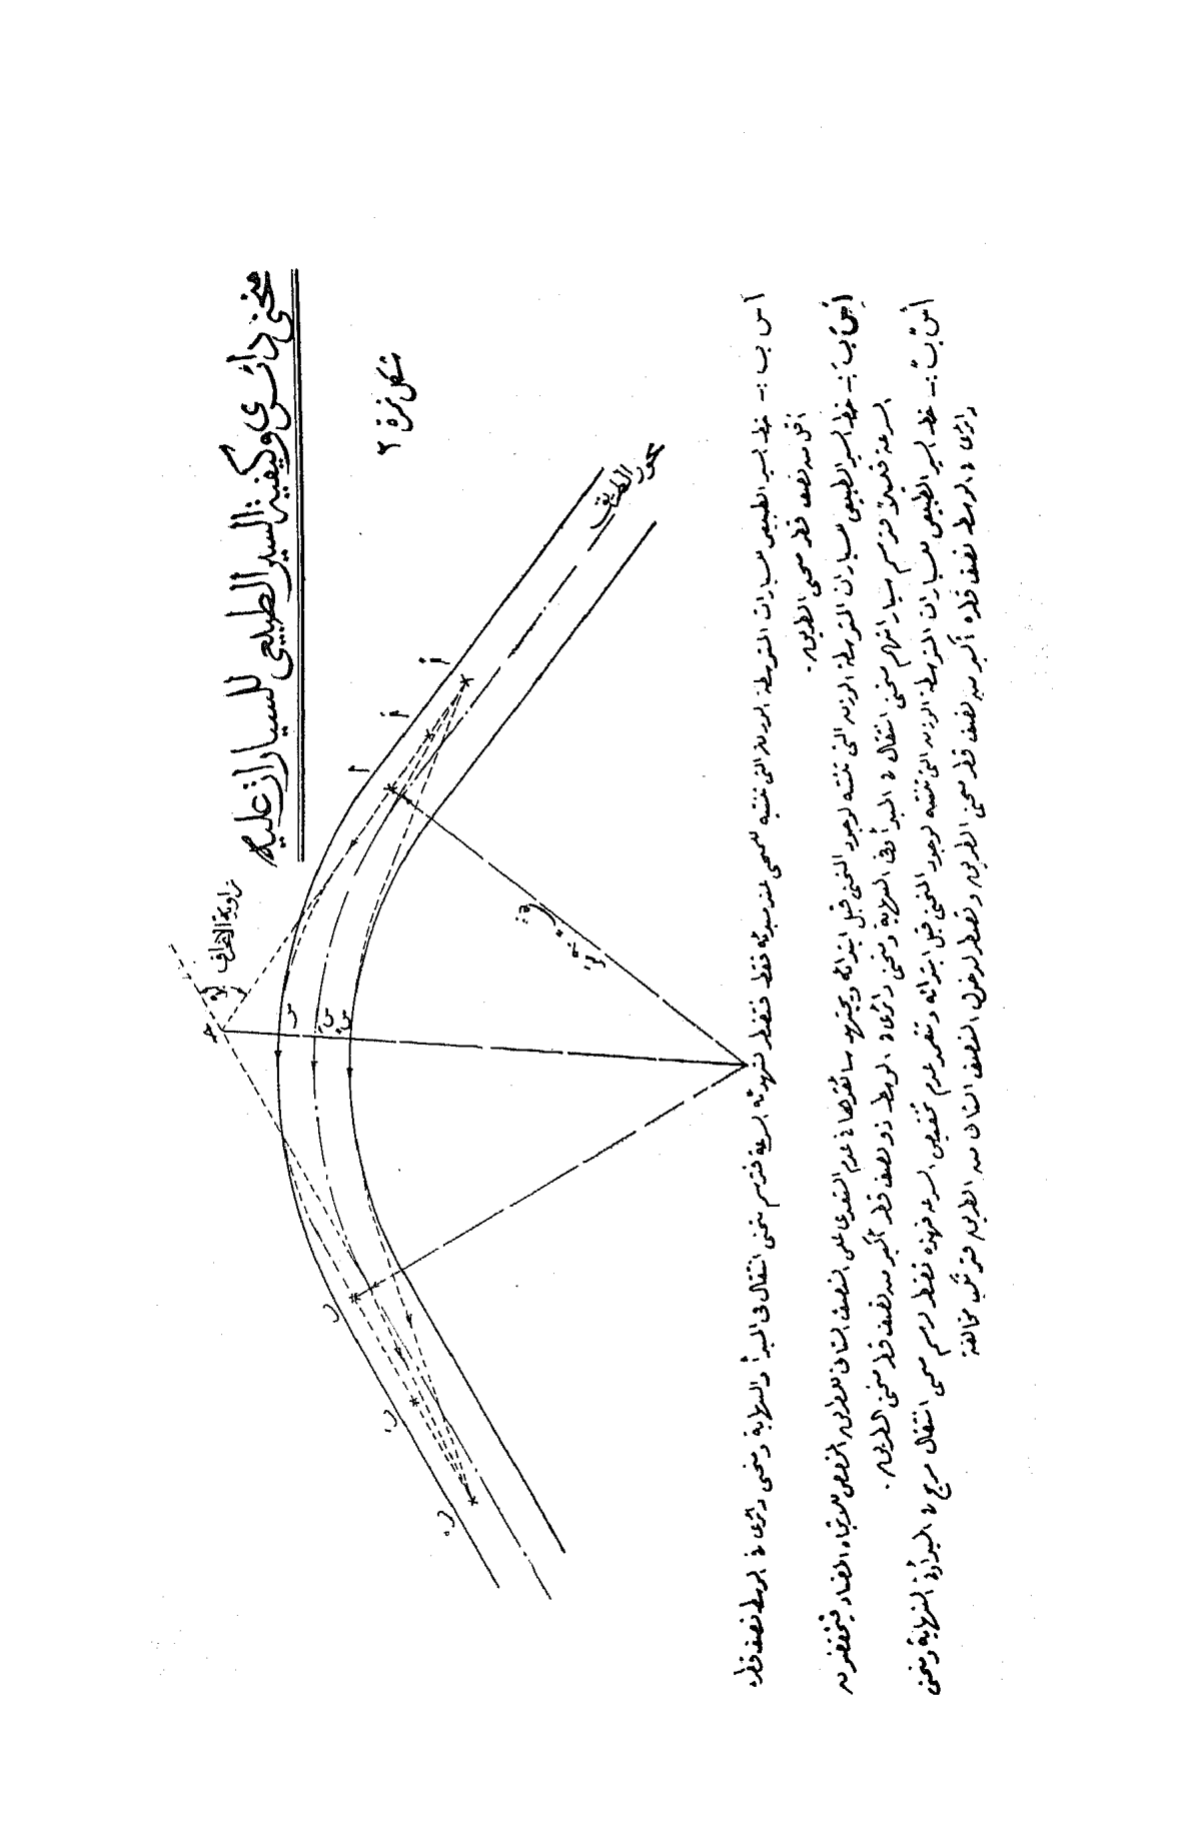 منحنى دائرى وكيفية السير الطبيعى للسيارات عليه
شكل نمرة ٢
زاوية الانحراف
محور الطريق
أَ
أً
أ
س
سَ
سً
ب
بَ
بً
أ س ب :- خط السير الطبيعى للسيارات المتوسطة السرعة التى تنتبه للمنحنى عند مبدئه فقط فتضطر لتهدئة السرعة فترسم منحنى انتقال فى المبدأ والنهاية ومنحنى دائرى فى الوسط نصف قطره
أقل من نصف قطر منحنى الطريق .
أَ سَ بَ :- خط السير الطبيعى للسيارات المتوسطة السرعة التى تنتبه لوجود المنحنى قبل ابتدائه ويجتهد سائقوها فى عدم التعدى على النصف الثانى للطريق المخصص للاتجاه المضاد فيخفضون
السرعة قليلا فترسم سياراتهم منحنى انتقال فى المبدأ وفى النهاية ومنحنى دائرى فى الوسط ذو نصف قطر أكبر من نصف قطر منحنى الطريق .
أً سً بً :- خط السير الطبيعى للسيارات المتوسطة السرعة التى تنتبه لوجود المنحنى قبل ابتدائه وتتعمد عدم تخفيض السرعة فهذه تضطر لرسم منحنى انتقال سريع فى المبدأ وفى النهاية ومنحنى
دائرى فى الوسط نصف قطره أكبر من نصف قطر منحنى الطريق وتضطر لدخول النصف الثانى من الطريق فترتكب مخالفة